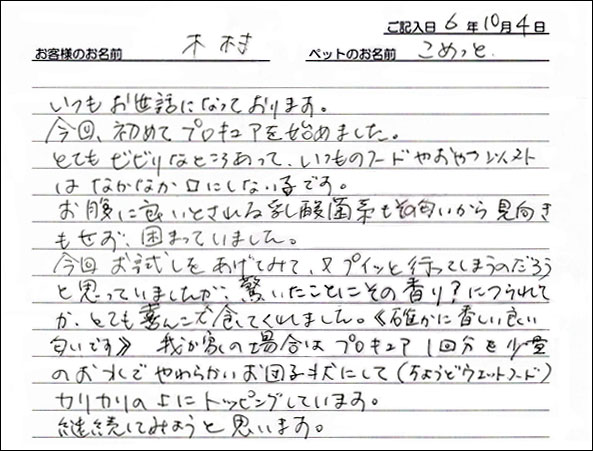 ご記入日 6 年 10 月 4 日
お客様のお名前 木村 ペットのお名前 こめっと
いつもお世話になっております。
今回、初めてプロキュアを始めました。
とてもビビりなところあって、いつものフードやおやつ以外
はなかなか口にしない子です。
お腹に良いとされる乳酸菌系もその匂いから見向き
もせず、困っていました。
今回お試しをあげてみて、又プイッと行ってしまうのだろう
と思っていましたが、驚いたことにその香り?につられて
か、とても喜んで食べてくれました。《確かに香しい良い
匂いです》 我が家の場合はプロキュア1回分を少量
のお水でやわらかいお団子状にして(ちょうどウエットフード)
カリカリの上にトッピングしています。
継続してみようと思います。